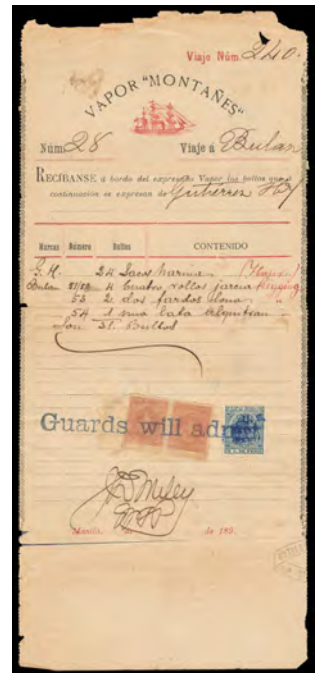 Viaje Núm. 240.
VAPOR "MONTAÑES"
Núm. 28 Viaje á Bulan
RECÍBANSE á bordo del expresado Vapor los bultos que á
continuación se expresan de Gutierrez
Marcas Número Bultos CONTENIDO
G. H. 24 Sacos harina
Bulan 51/52 4 Cuatro rollos jarcia Rigging
53 2 dos fardos lona
54 1 una lata alquitran
Son 31. Bultos
Guards will admit
Manila, de de 189